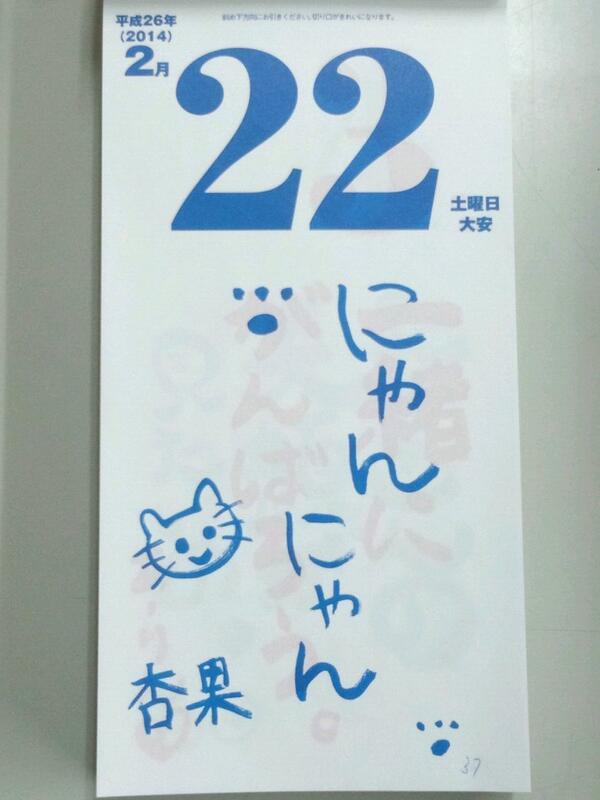 平成26年
(2014)
2月
斜め下方向にお引きください。切り口がきれいになります。
22
土曜日
大安
にゃん
にゃん
杏果
37